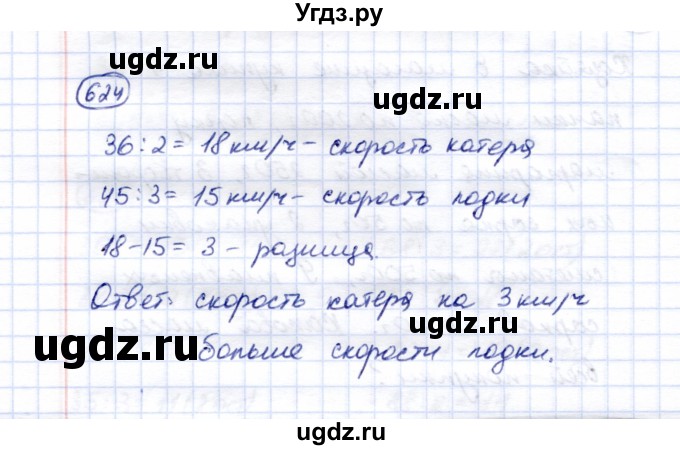 Угдз.ру
624
ugdz.ru ugdz.ru
36:2= 18 км/ч - скорость катера
45:3= 15 км/ч - скорость лодки
ugdz.ru
18-15= 3 - разница.
Ответ: скорость катера на 3 км/ч
ugdz.ru ugdz.ru
больше скорости лодки.
ugdz.ru